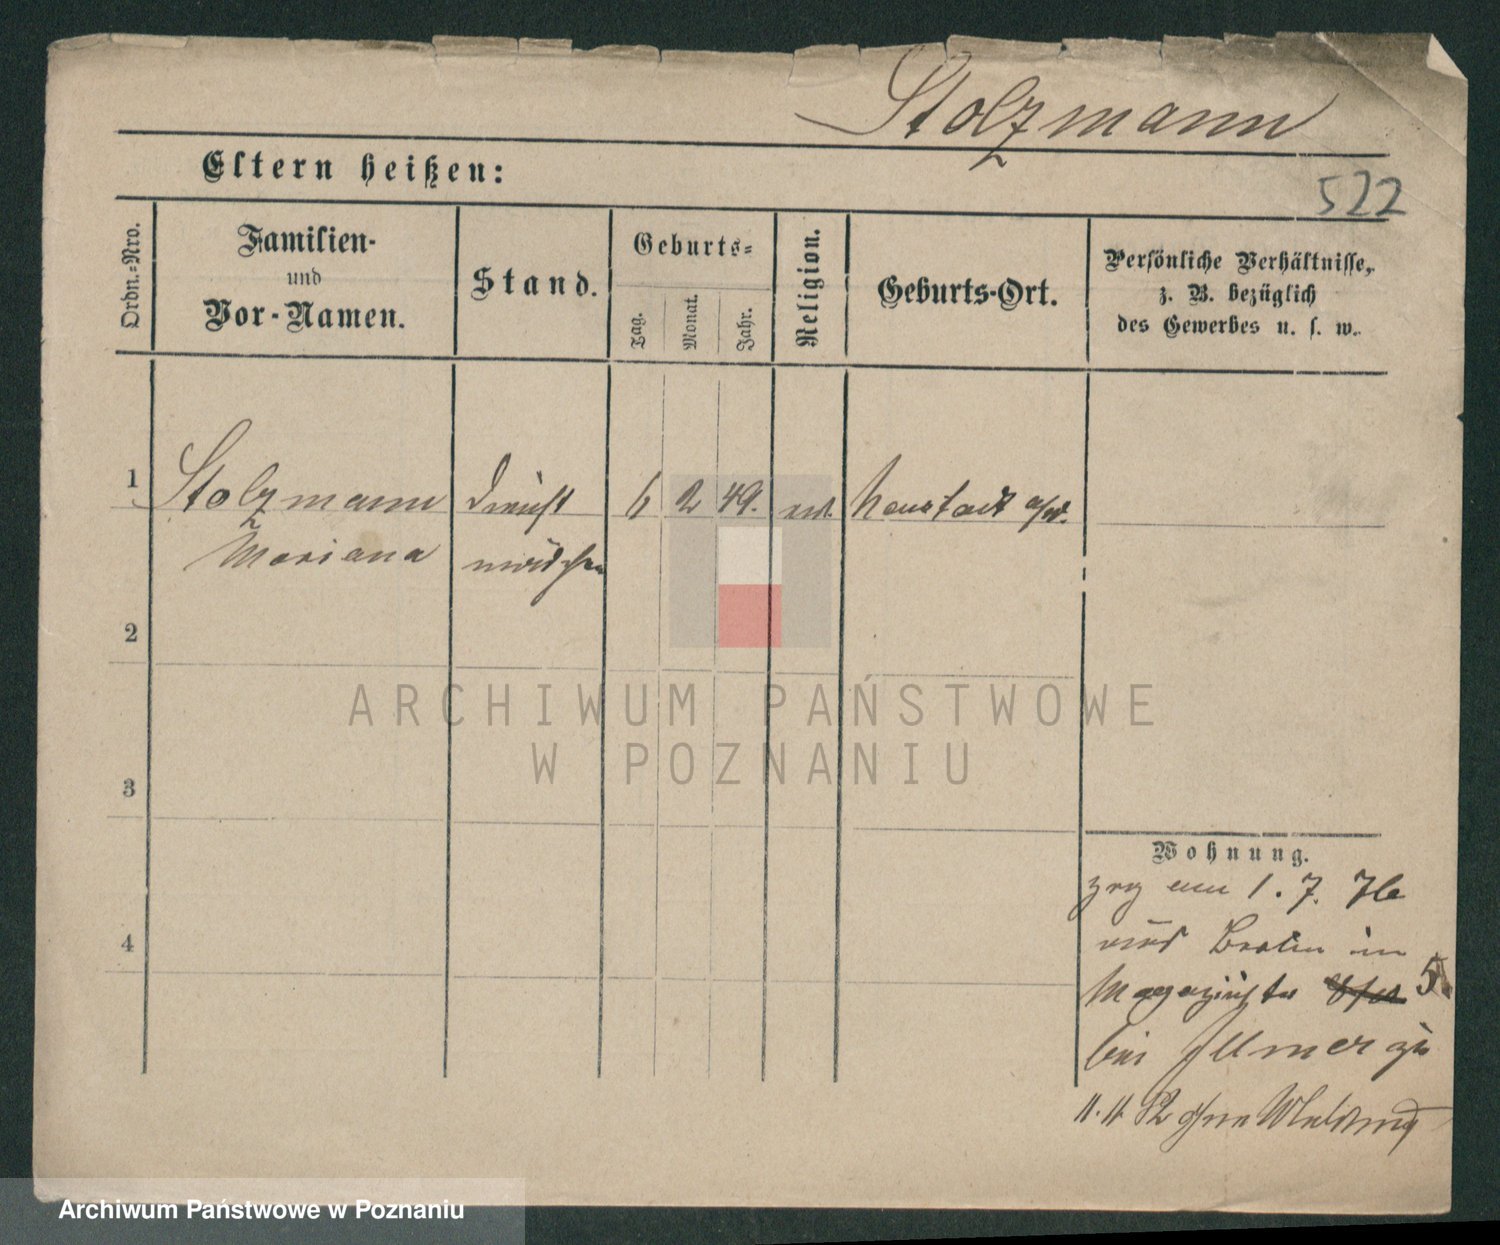 Stolzmann
Eltern heißen:
522
Ordn.-Nro.
Familien-
und
Vor-Namen.
Stand.
Geburts-
Tag.
Monat.
Jahr.
Religion.
Geburts-Ort.
Persönliche Verhältnisse,
z. B. bezüglich
des Gewerbes u. s. w.
1
Stolzmann
Mariana
Dienst
mädchen
6
2
49.
Neustadt a/W.
2
3
4
ARCHIWUM PAŃSTWOWE
W POZNANIU
Wohnung.
zog am 1. 7. 76
aus Berlin im
5
bei Illmer zu
11. 11. 82 ohne Meldung
Archiwum Państwowe w Poznaniu